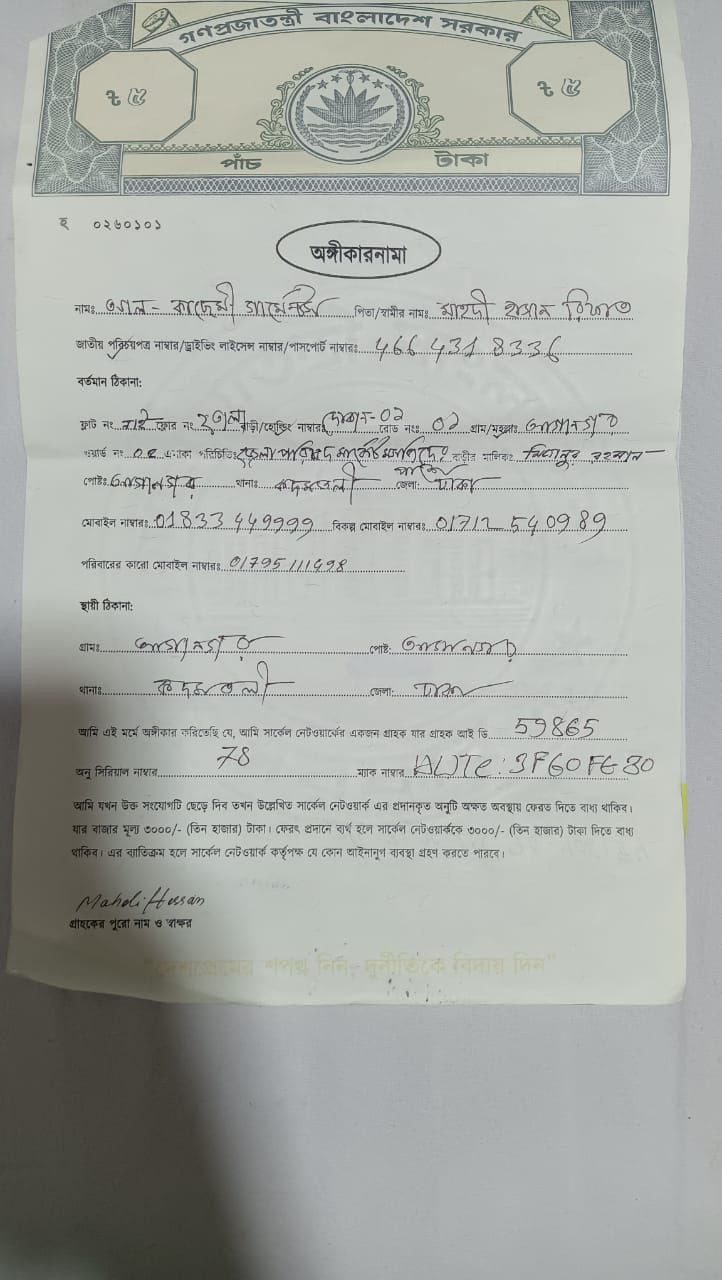 গণপ্রজাতন্ত্রী বাংলাদেশ সরকার
৳ ৫ ৳ ৫
পাঁচ টাকা
হ ০২৬০১০১
অঙ্গীকারনামা
নামঃ আল- কাদেমী গার্মেন্টস পিতা/স্বামীর নামঃ মাহদী হাসান রিফাত
জাতীয় পরিচয়পত্র নাম্বার/ড্রাইভিং লাইসেন্স নাম্বার/পাসপোর্ট নাম্বারঃ 466 431 8336
বর্তমান ঠিকানা:
ফ্লাট নং নাই ফ্লোর নং ২তলা বাড়ী/হোল্ডিং নাম্বারঃ দোকান-02 রোড নংঃ 02 গ্রাম/মহল্লাঃ
ওয়ার্ড নং এলাকা পরিচিতিঃ মার্কেট মসজিদের পাশে বাড়ীর মালিকঃ মিজানুর রহমান
পোষ্টঃ থানাঃ কদমতলী জেলা: ঢাকা
মোবাইল নাম্বারঃ 01833 449999 বিকল্প মোবাইল নাম্বারঃ 01712 540989
পরিবারের কারো মোবাইল নাম্বারঃ 01795111498
স্থায়ী ঠিকানা:
গ্রামঃ পোষ্ট:
থানাঃ কদমতলী জেলা: ঢাকা
আমি এই মর্মে অঙ্গীকার করিতেছি যে, আমি সার্কেল নেটওয়ার্কের একজন গ্রাহক যার গ্রাহক আই ডি 59865
অনু সিরিয়াল নাম্বার 78 ম্যাক নাম্বার
আমি যখন উক্ত সংযোগটি ছেড়ে দিব তখন উল্লেখিত সার্কেল নেটওয়ার্ক এর প্রদানকৃত অনুটি অক্ষত অবস্থায় ফেরত দিতে বাধ্য থাকিব।
যার বাজার মূল্য ৩০০০/- (তিন হাজার) টাকা। ফেরৎ প্রদানে ব্যর্থ হলে সার্কেল নেটওয়ার্ককে ৩০০০/- (তিন হাজার) টাকা দিতে বাধ্য
থাকিব। এর ব্যতিক্রম হলে সার্কেল নেটওয়ার্ক কর্তৃপক্ষ যে কোন আইনানুগ ব্যবস্থা গ্রহণ করতে পারবে।
Mahdi Hassan
গ্রাহকের পুরো নাম ও স্বাক্ষর
"দেশপ্রেমের শপথ নিন, দুর্নীতিকে বিদায় দিন"